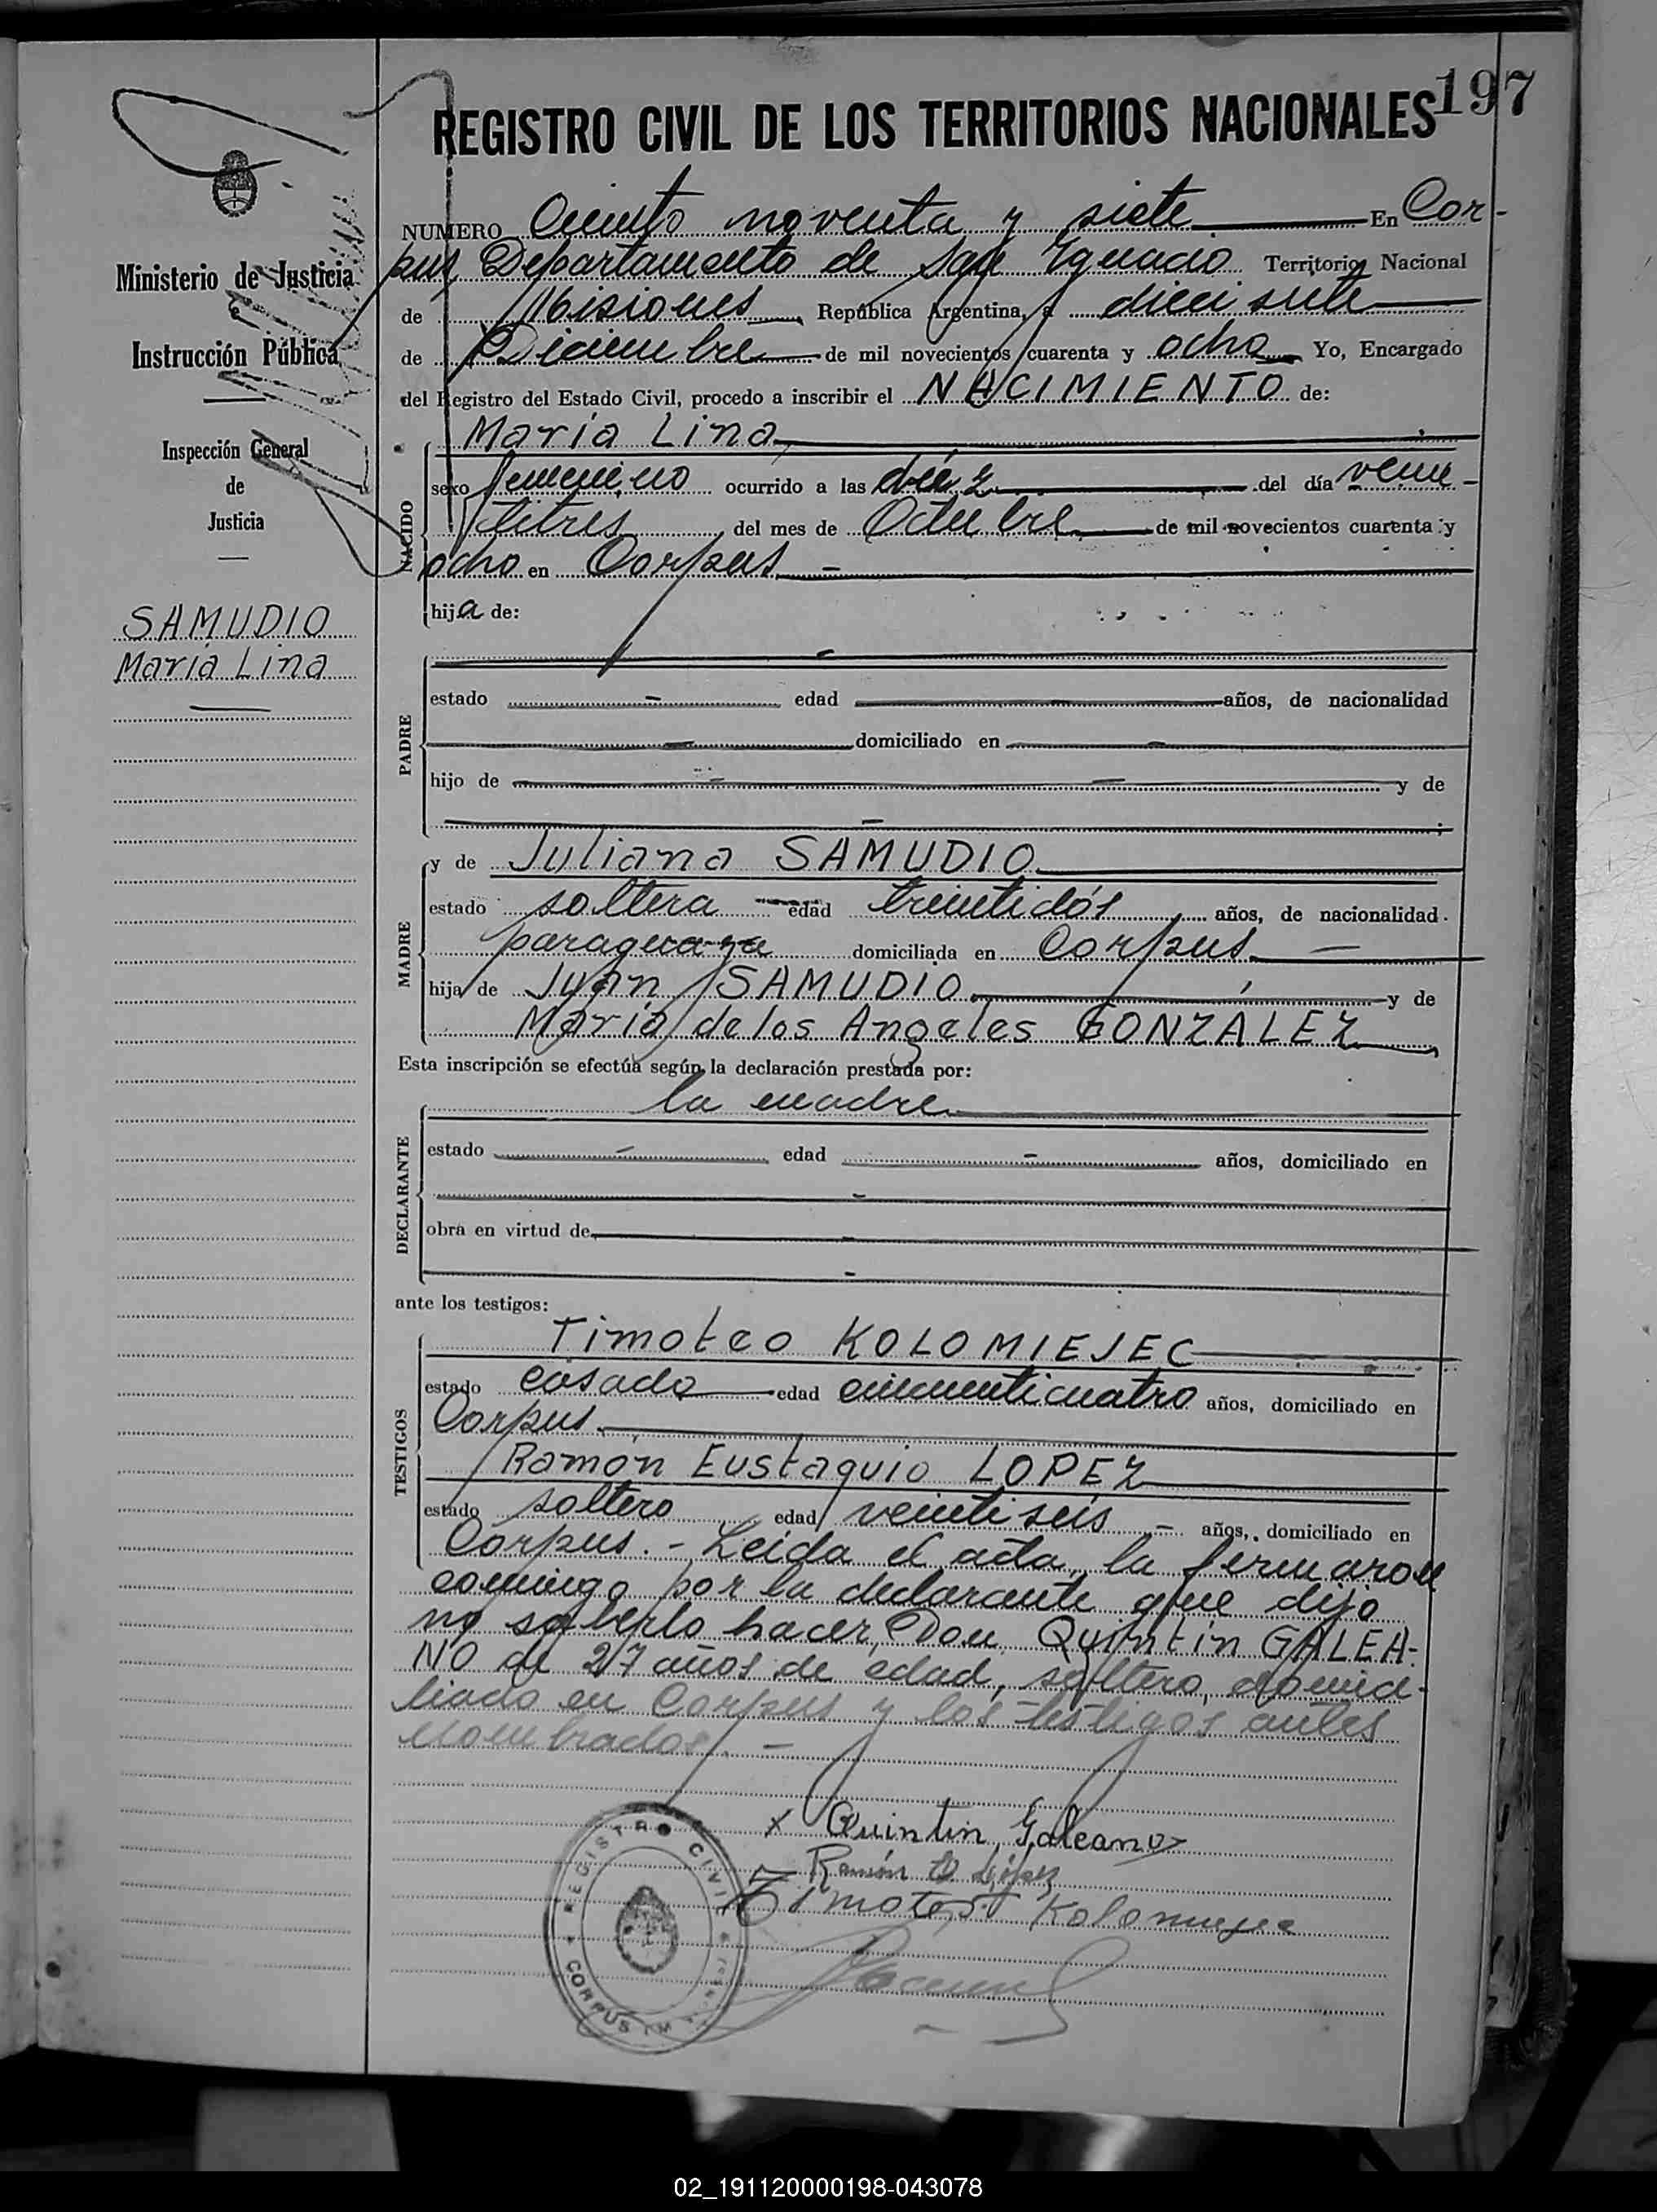 197
REGISTRO CIVIL DE LOS TERRITORIOS NACIONALES
NUMERO Ciento noventa y siete En Cor-
pus, Departamento de San Ignacio Territorio Nacional
de Misiones, República Argentina, a dieci siete
de Diciembre de mil novecientos cuarenta y ocho Yo, Encargado
del Registro del Estado Civil, procedo a inscribir el NACIMIENTO de:
Ministerio de Justicia
Instrucción Pública
Inspección General
de
Justicia
SAMUDIO
María Lina
NACIDO
María Lina
sexo femenino ocurrido a las diez del día vein-
titres del mes de Octubre de mil novecientos cuarenta y
ocho en Corpus. -
hija de:
PADRE
estado - edad - años, de nacionalidad
- domiciliado en -
hijo de - y de
MADRE
y de Juliana SAMUDIO
estado soltera edad treintidós años, de nacionalidad
paraguaya domiciliada en Corpus. -
hija de Juan SAMUDIO y de
María de los Angeles GONZALEZ
Esta inscripción se efectúa según la declaración prestada por:
DECLARANTE
la madre
estado - edad - años, domiciliado en
-
obra en virtud de -
-
ante los testigos:
TESTIGOS
Timoteo KOLOMIEJEC
estado casado edad cincuenticuatro años, domiciliado en
Corpus.
Ramón Eustaquio LOPEZ
estado soltero edad veintiseis - años, domiciliado en
Corpus. - Leida el acta, la firmaron
conmigo por la declarante que dijo
no saberlo hacer, Don Quintín GALEA-
NO de 27 años de edad, soltero, domici-
liado en Corpus y los testigos antes
nombrados. -
x Quintin Galeano
Ramón E López
Timoteo Kolomiejec
REGISTRO CIVIL
CORPUS
02_191120000198-043078